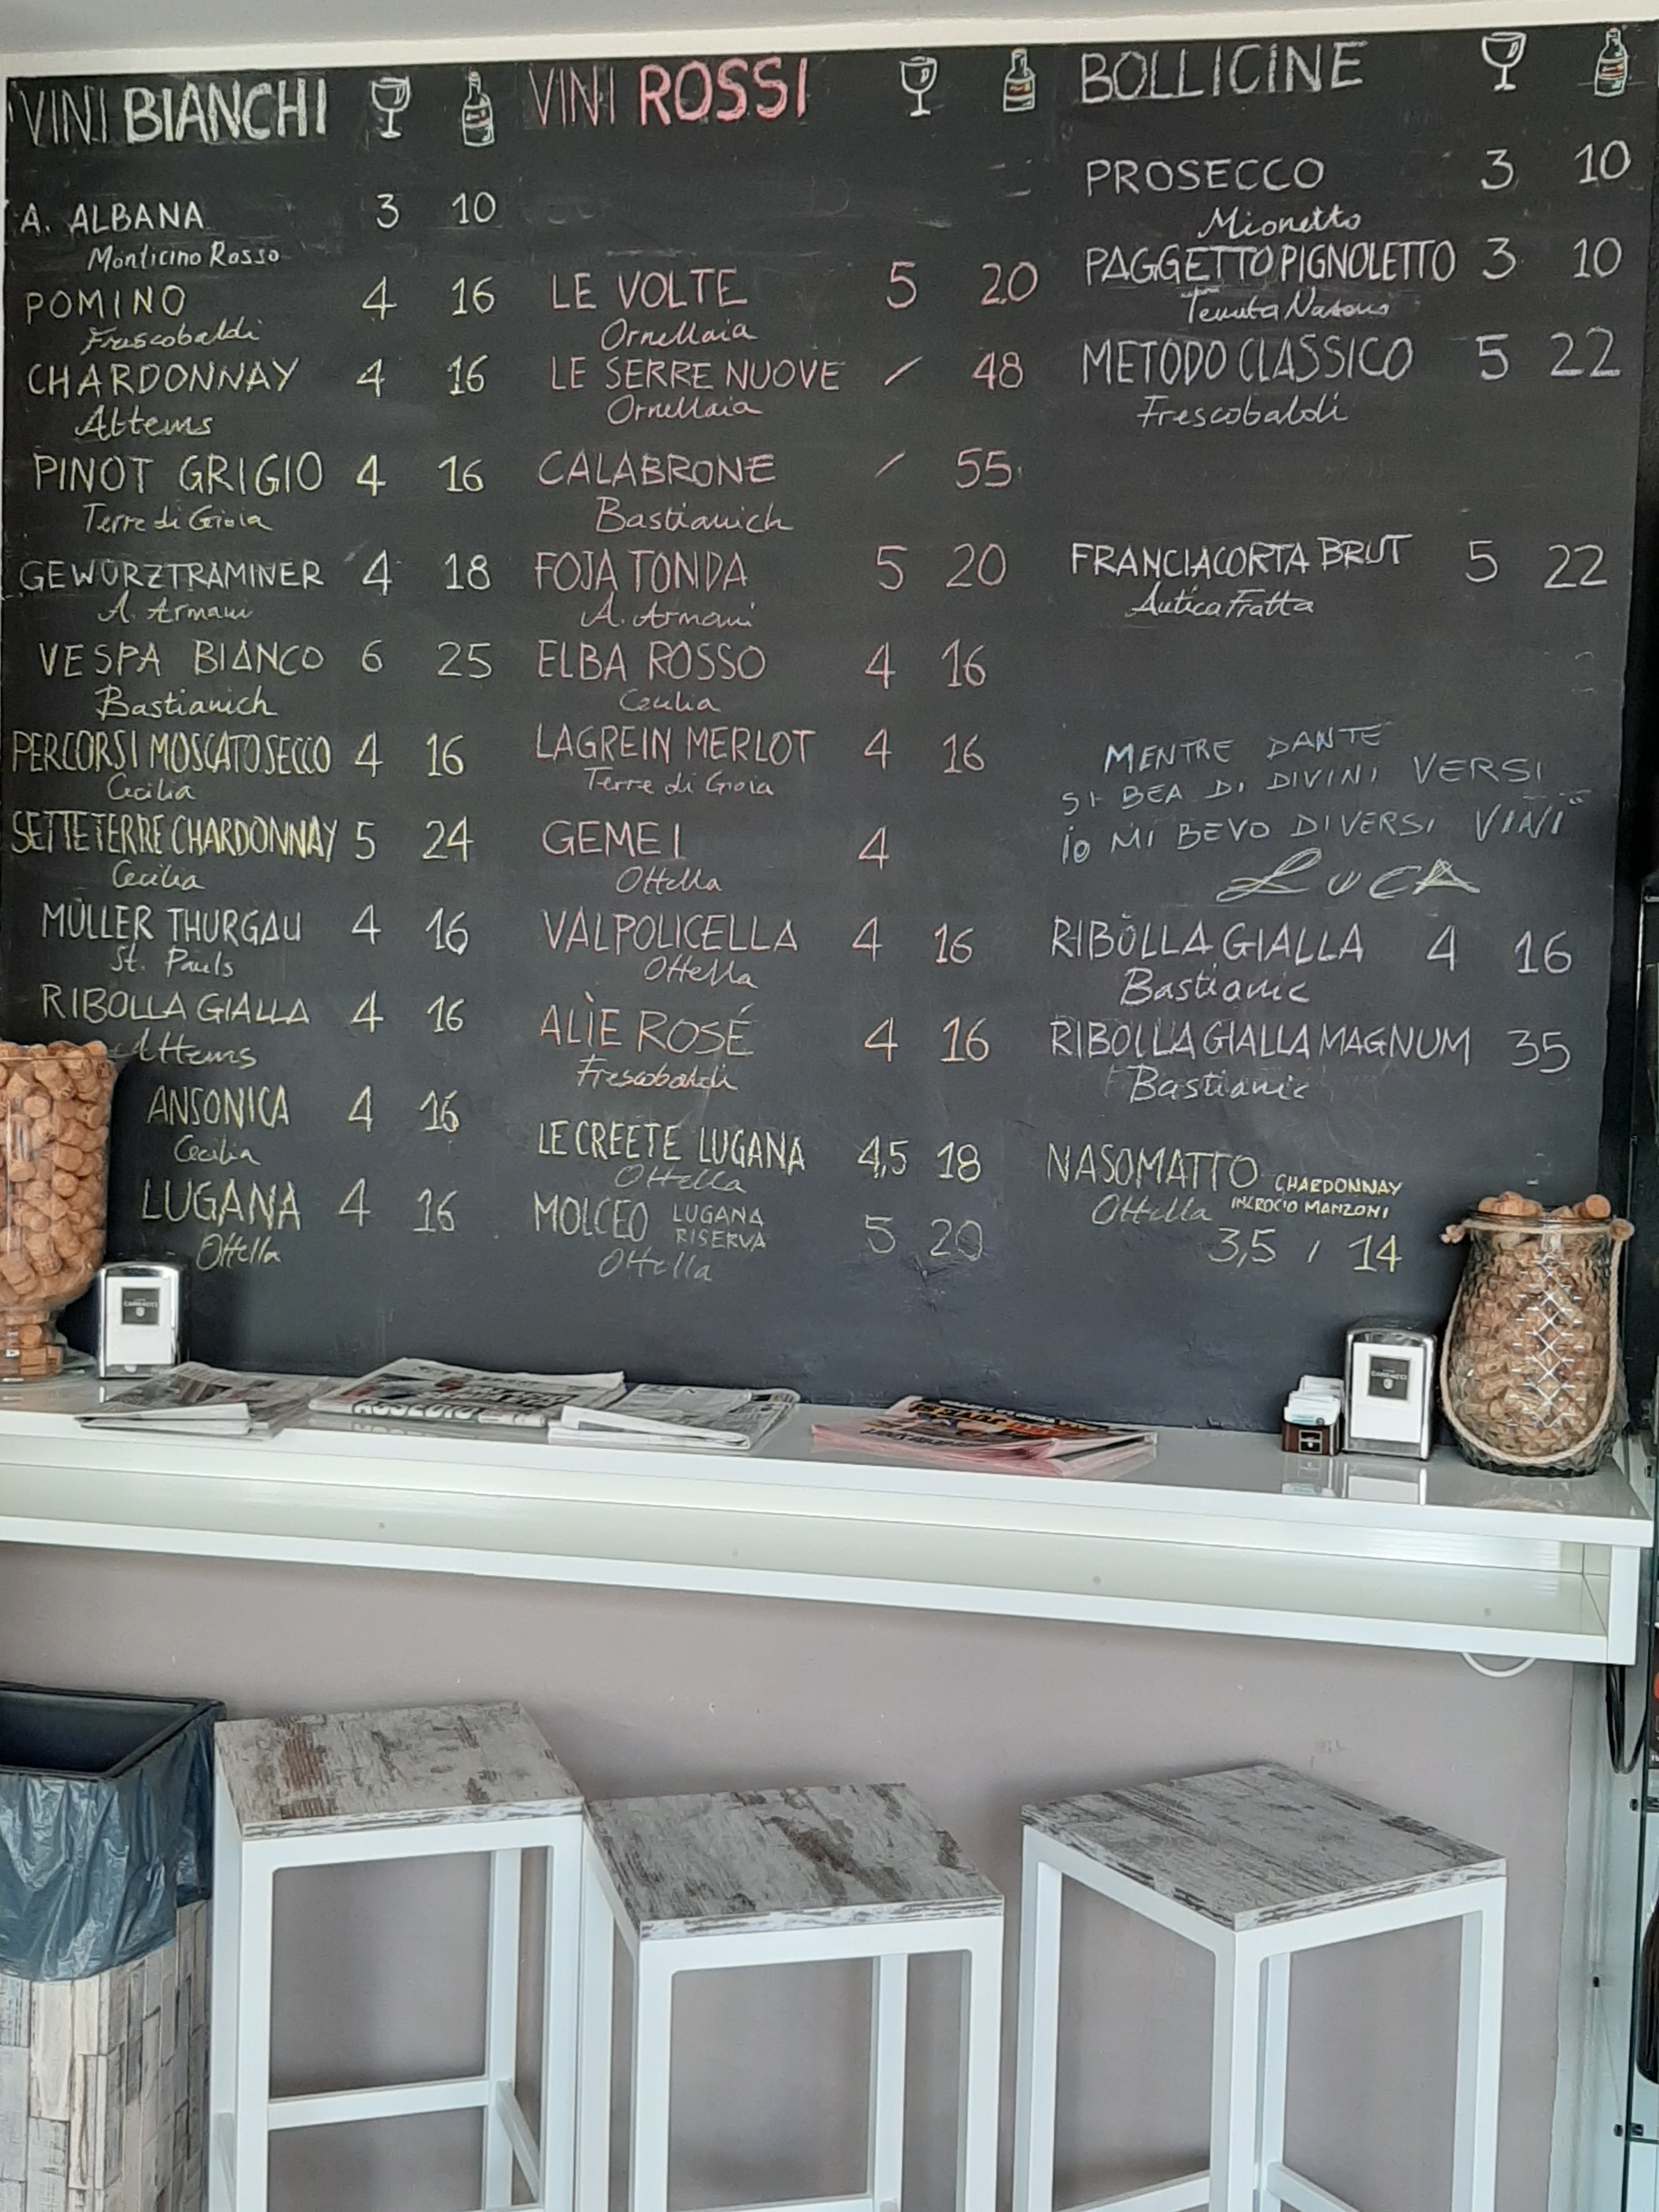 VINI BIANCHI
A. ALBANA 3 10
Monticino Rosso
POMINO 4 16
Frescobaldi
CHARDONNAY 4 16
Attems
PINOT GRIGIO 4 16
Terre di Gioia
GEWÜRZTRAMINER 4 18
A. Armani
VESPA BIANCO 6 25
Bastianich
PERCORSI MOSCATO SECCO 4 16
Cecilia
SETTETERRE CHARDONNAY 5 24
Cecilia
MÜLLER THURGAU 4 16
St. Pauls
RIBOLLA GIALLA 4 16
Attems
ANSONICA 4 16
Cecilia
LUGANA 4 16
Ottella
VINI ROSSI
LE VOLTE 5 20
Ornellaia
LE SERRE NUOVE / 48
Ornellaia
CALABRONE / 55
Bastianich
FOJA TONDA 5 20
A. Armani
ELBA ROSSO 4 16
Cecilia
LAGREIN MERLOT 4 16
Terre di Gioia
GEMEI 4
Ottella
VALPOLICELLA 4 16
Ottella
ALÌE ROSÉ 4 16
Frescobaldi
LE CREETE LUGANA 4,5 18
Ottella
MOLCEO LUGANA
RISERVA 5 20
Ottella
BOLLICINE
PROSECCO 3 10
Mionetto
PAGGETTO PIGNOLETTO 3 10
Tenuta
METODO CLASSICO 5 22
Frescobaldi
FRANCIACORTA BRUT 5 22
Antica Fratta
MENTRE DANTE
SI BEA DI DIVINI VERSI
IO MI BEVO DIVERSI VINI
LUCA
RIBOLLA GIALLA 4 16
Bastianic
RIBOLLA GIALLA MAGNUM 35
Bastianic
NASOMATTO CHARDONNAY
Ottella INCROCIO MANZONI
3,5 / 14